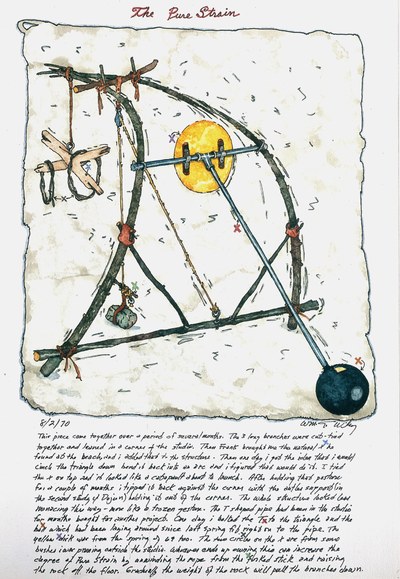 The Pure Strain
8/2/70
This piece came together over a period of several months. The 2 long branches were cut - tied
together and leaned in a corner of the studio. Then Frank brought me the natural X he
found at the beach, and i added that to the structure. Then one day i got the idea that i would
cinch the triangle down - bend it back into an arc and i figured that would do it. I tied
the X on top and it looked like a catapult about to launch. After holding that gesture
for a couple of months i tipped it back against the corner with the
the second study of holding it out of the corner. The whole structure looked less
menacing this way - more like a frozen gesture. The T shaped pipe had been in the studio
for months bought for another project. One day i bolted the T to the triangle, and the
ball which had been laying around since last spring fit right on to the pipe. The
yellow was from the spring of 69 too. The two circles on the X are from some
bushes i was pruning outside the studio. Whoever ends up owning this can increase the
degree of Pure Strain by unwinding the rope from the forked stick and raising
the rock off the floor. Gradually the weight of the rock will pull the branches down.